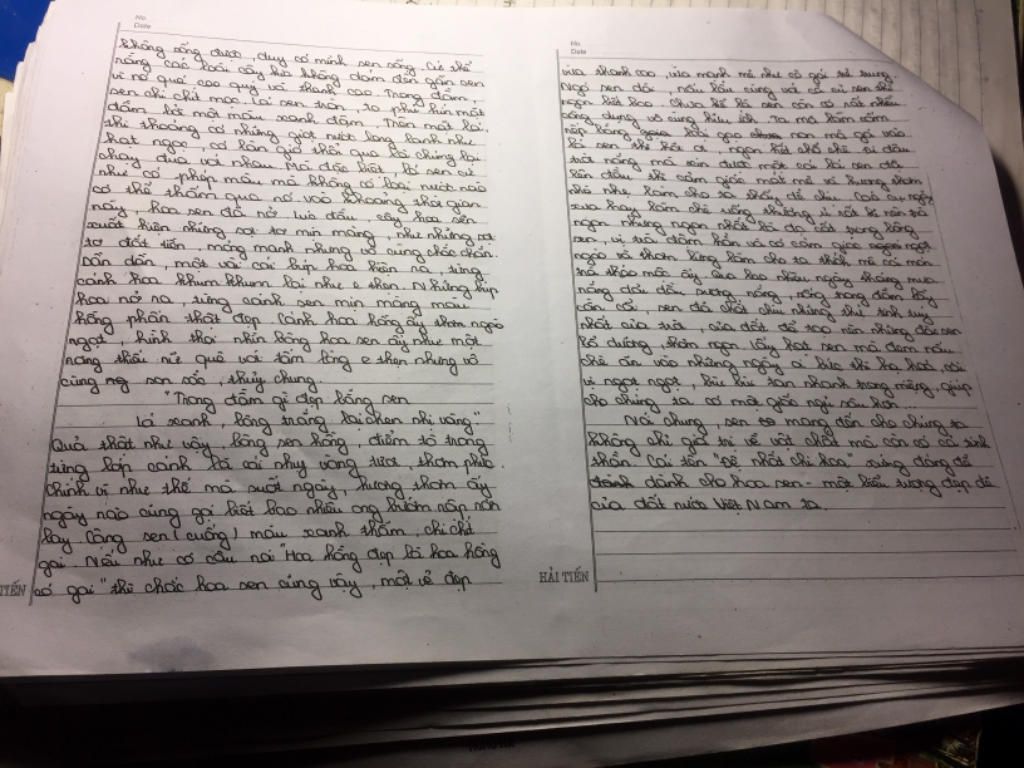 No
Date
không sống được, duy có mình sen sống. Cứ thể
rằng các loài cây kia không dám đến gần sen
vì nó quá cao quý và thanh cao. Trong đầm,
sen chi chít mọc. Lá sen tròn, to phủ kín mặt
đầm bởi một màu xanh đậm. Trên mặt lá,
thi thoảng có những giọt nước long lanh như
hạt ngọc, có làn gió thổi qua là chúng lại
chạy đua với nhau. Mà đặc biệt, lá sen cứ
như có phép màu mà không có loại nước nào
có thể thấm qua nó. Vào khoảng thời gian
này, hoa sen đã nở. Lúc đầu, cây hoa sen
xuất hiện những sợi tơ mịn màng, như những sợi
tơ đắt tiền, mỏng manh nhưng vô cùng chắc chắn.
Dần dần, một vài cái búp hoa hiện ra, từng
cánh hoa khum khum lại như e thẹn. Những búp
hoa nở ra, từng cánh sen mịn màng màu
hồng phấn thật đẹp. Cánh hoa hồng ấy thơm ngào
ngạt, hình thái nhìn bông hoa sen ấy như một
nàng thiếu nữ quê với tấm lòng e thẹn nhưng vô
cùng son sắc, thủy chung.
"Trong đầm gì đẹp bằng sen
Lá xanh, bông trắng, lại chen nhị vàng."
Quả thật như vậy, bông sen hồng, điểm tô trong
từng lớp cánh là cái nhụy vàng tươi, thơm phức.
Chính vì như thế mà suốt ngày, hương thơm ấy
ngày nào cũng gọi biết bao nhiêu ong bướm nập nờn
bay. Cẳng sen (cuống) màu xanh thẫm, chi chít
gai. Nếu như có câu nói "Hoa hồng đẹp là hoa hồng
có gai" thì chắc hoa sen cũng vậy, một vẻ đẹp
TIẾN
No
Date
vừa thanh cao, vừa mạnh mẽ như cô gái trẻ trung.
Ngó sen dài, nấu lẩu cùng với cả củ sen thì
ngon biết bao. Chưa kể lá sen còn có rất nhiều
công dụng vô cùng hữu ích. Ta mà hái cốm
nếp bằng loại gạo non mà gói vào
lá sen thì hết ý, ngon hết chỗ chê. Đi đâu
trời nắng mà xin được một cái lá sen đội
lên đầu thì cảm giác mát mẻ và hương thơm
nhè nhẹ làm cho ta thấy dễ chịu. Các cụ ngày
xưa hay làm chè uống thường vì rất kì nên trà
ngon nhưng ngon nhất là đã cất trong bông
sen, vị trà đậm hẳn và có cảm giác ngọt
ngào và thơm lừng làm cho ta thích mê cái món
trà thảo mộc ấy. Qua bao nhiêu ngày tháng mưa
nắng dãi dầu sương, nắng, sống trong đầm lầy
cằn cỗi, sen đã chắt chiu những thứ tinh túy
nhất của trời, của đất để tạo nên những đài sen
bổ dưỡng, thơm ngon. Lấy hạt sen mà đem nấu
chè ăn vào những ngày oi bức thì hạ hoả, cái
vị ngọt ngọt, bùi bùi tan nhanh trong miệng, giúp
cho chúng ta có một giấc ngủ sâu hơn...
Nói chung, sen mang đến cho chúng ta
không chỉ giá trị về vật chất mà còn có cả tinh
thần. Cái tên "Đệ nhất chi hoa" xứng đáng để
dành cho hoa sen - một biểu tượng đẹp đẽ
của đất nước Việt Nam ta.
HẢI TIẾN